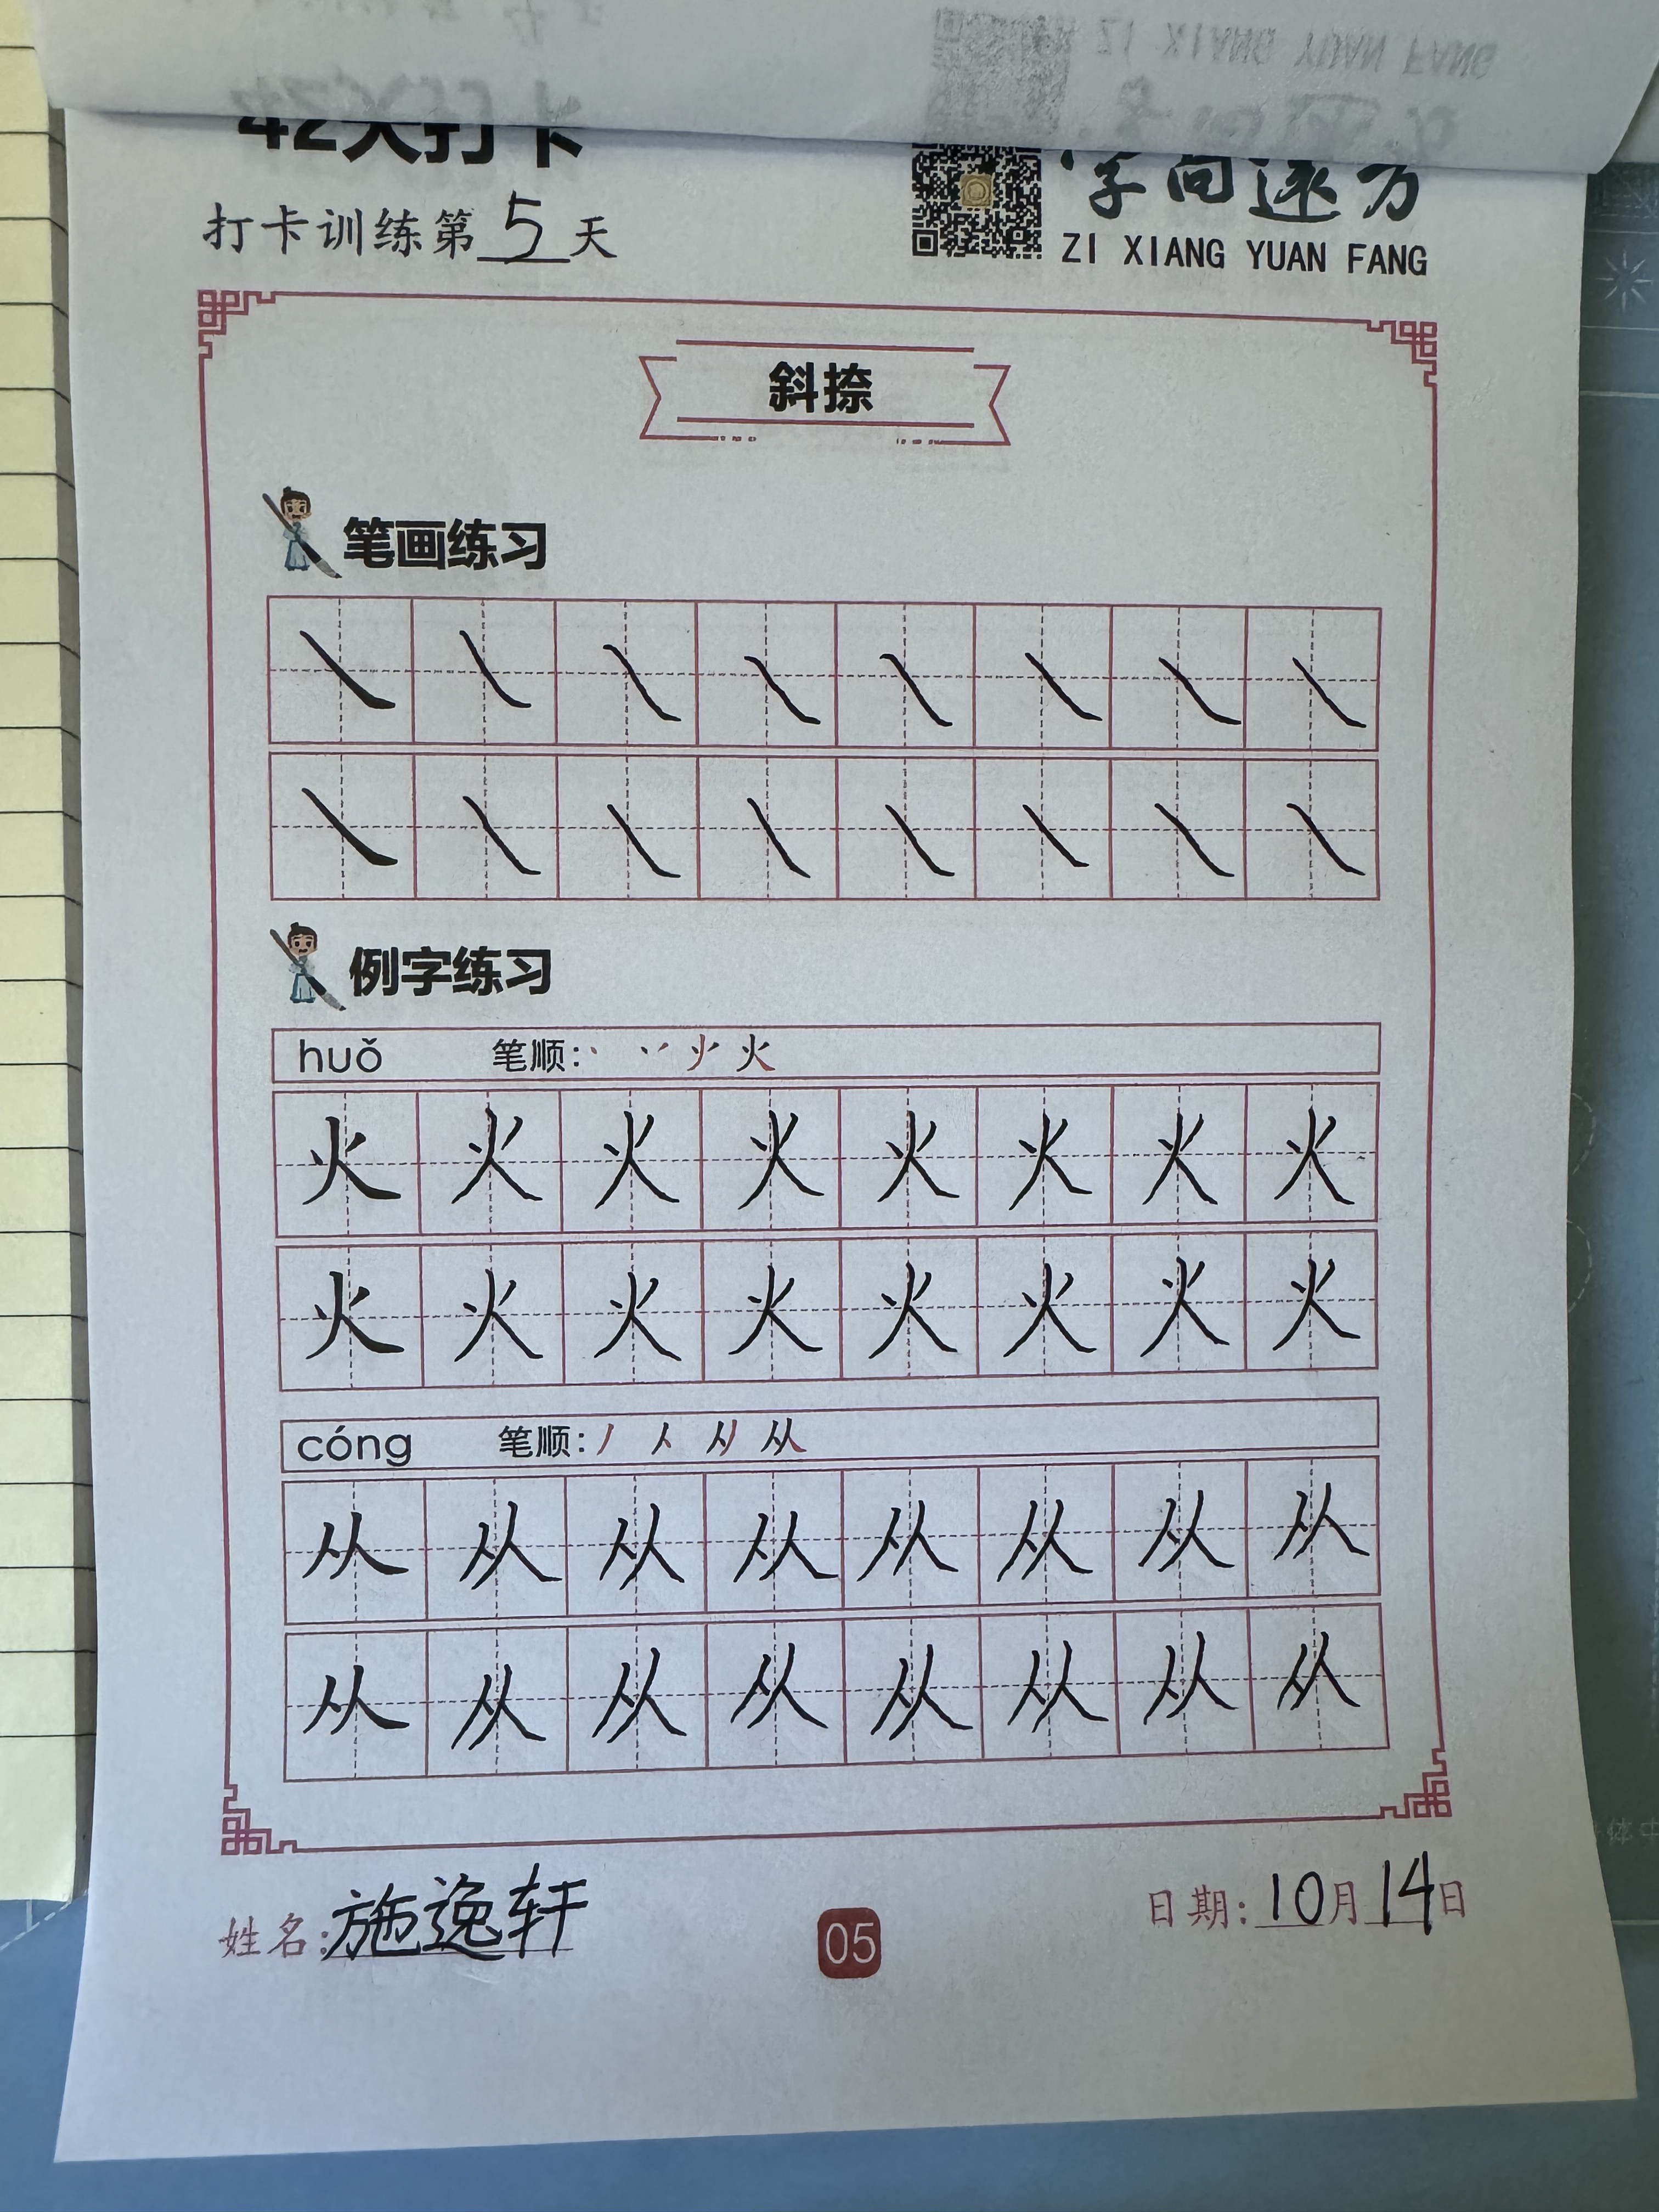 42天打卡
字向远方
打卡训练第5天
ZI XIANG YUAN FANG
斜捺
笔画练习
例字练习
huǒ 笔顺：
火 火 火 火 火 火 火 火
火 火 火 火 火 火 火 火
cóng 笔顺： 丿 人 从
从 从 从 从 从 从 从 从
从 从 从 从 从 从 从 从
姓名：施逸轩
05
日期：10月14日